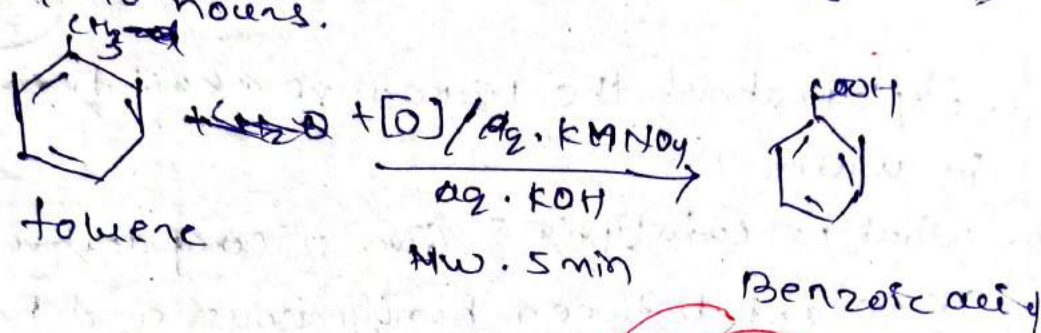 hours.
CH3
+[O]/aq. KMNO4
COOH
aq. KOH
toluene
MW. 5 min
Benzoic acid